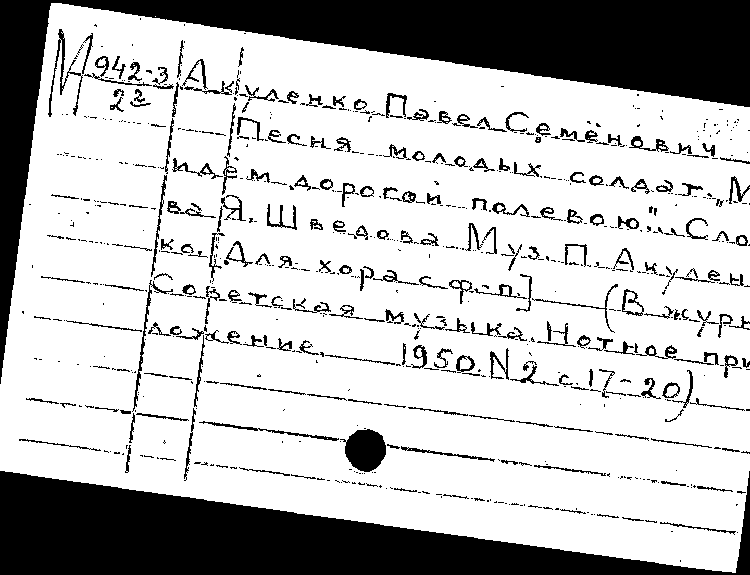 М 942-3/22 Акуленко, Павел Семёнович
Песня молодых солдат. "М
идём дорогой полевою"... Сло
ва Я. Шведова. Муз. П. Акулен
ко. [Для хора с ф.-п.] (В журн
Советская музыка. Нотное при
ложение. 1950. N 2. с. 17-20).